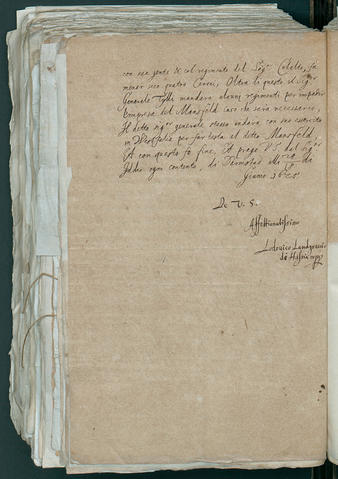 con sua gente & col regimento del Sig.r Colalto, fa
menar seco quatro Canoni, Oltra di questo il Sig.r
Generale Tylli mandera alcuni regimenti per impedir
l'impresa del Mansfeld caso che sara necessario,
Il detto sig.r generale stesso andara con suo exercito
in Westfalia per far testa al detto Mansfeld,
Et con questo fo fine, Et prego V.S. dal Sig.r
Iddio ogni contento, di Darmstat alli di
1625
De V. S.
Affettionatissimo
Lodovico Landgravio
di Hassia